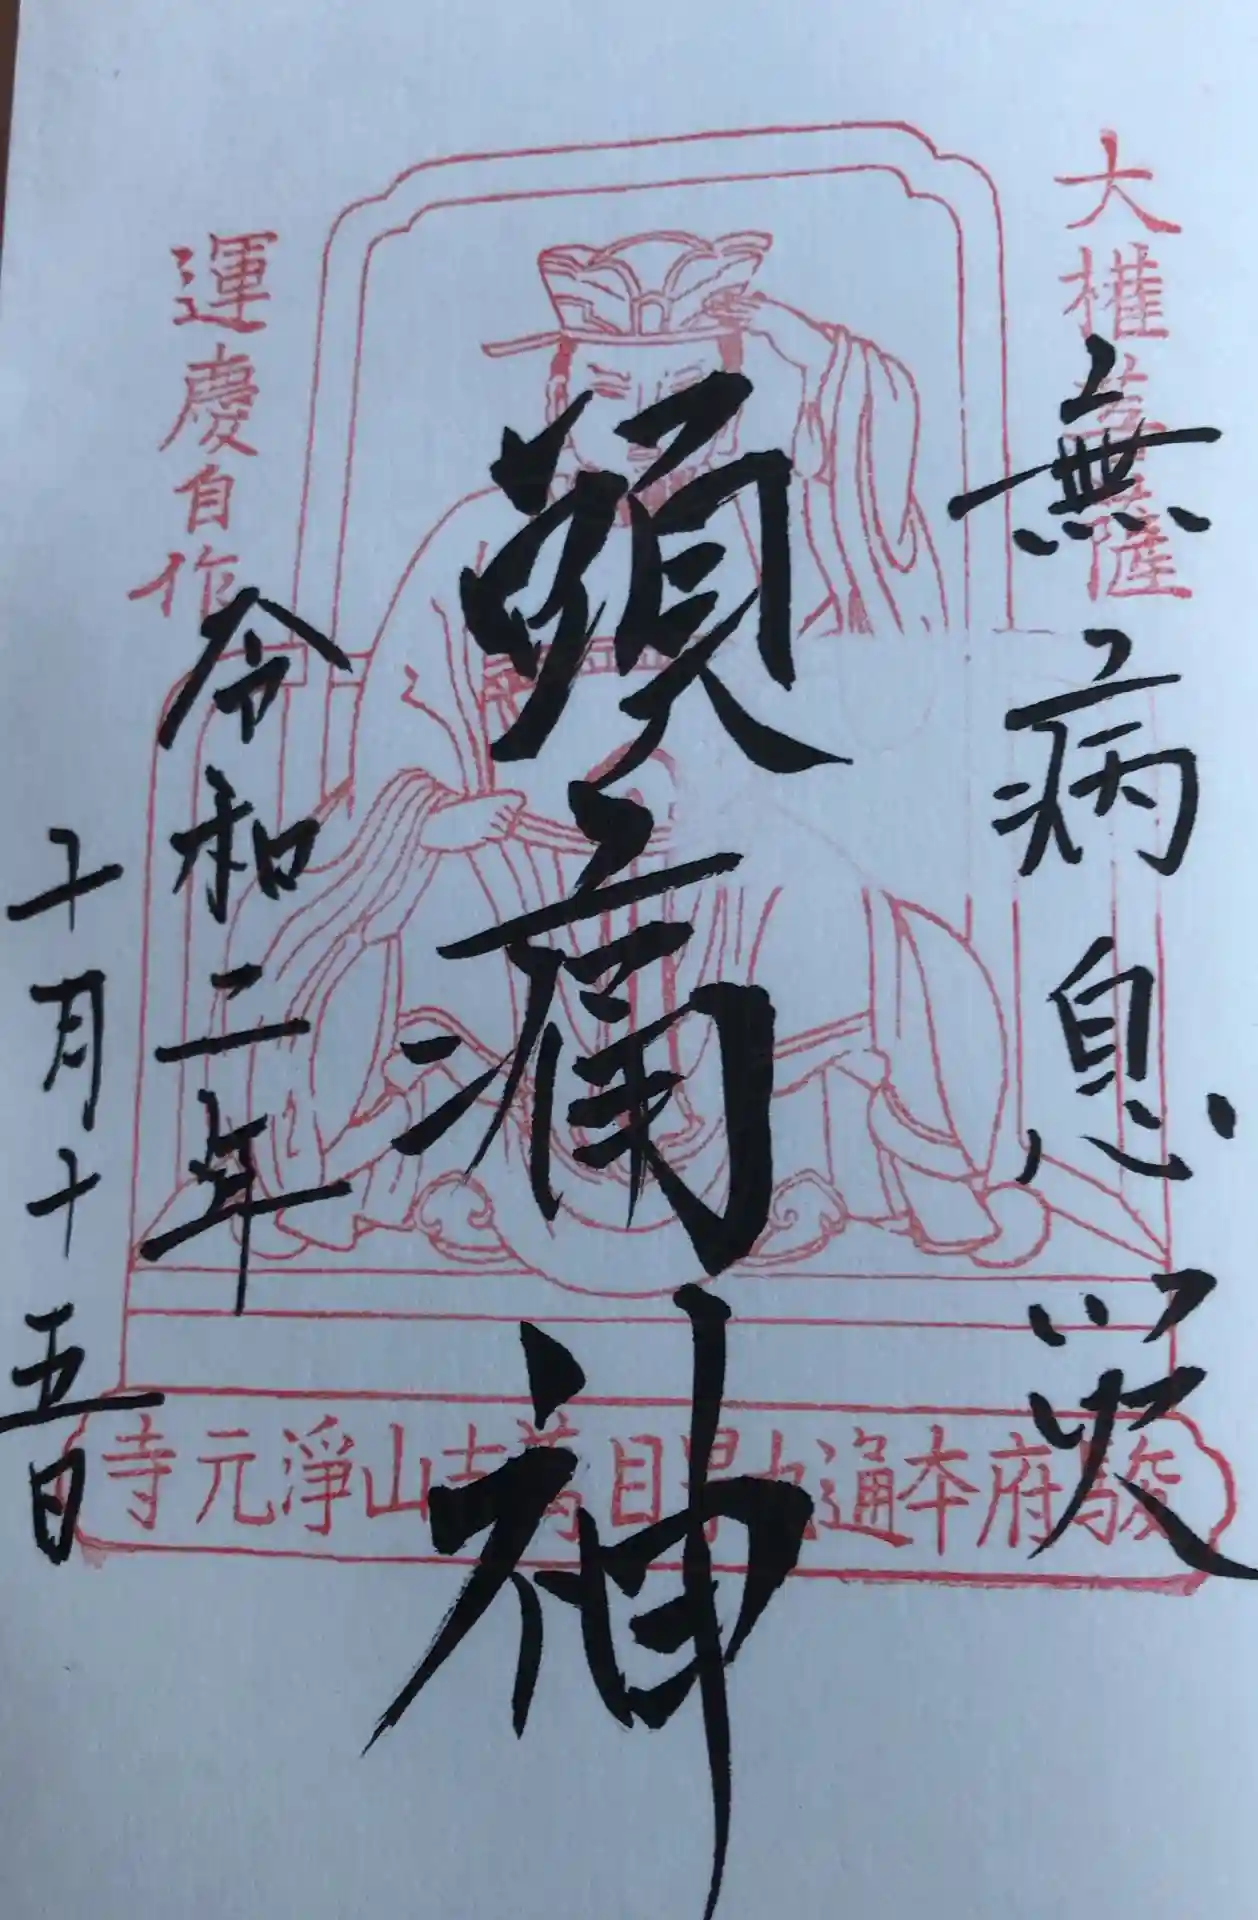 大權菩薩
無病息災
頭痛神
運慶自作
令和二年
十月十五日
駿府本通九早目萬吉山淨元寺